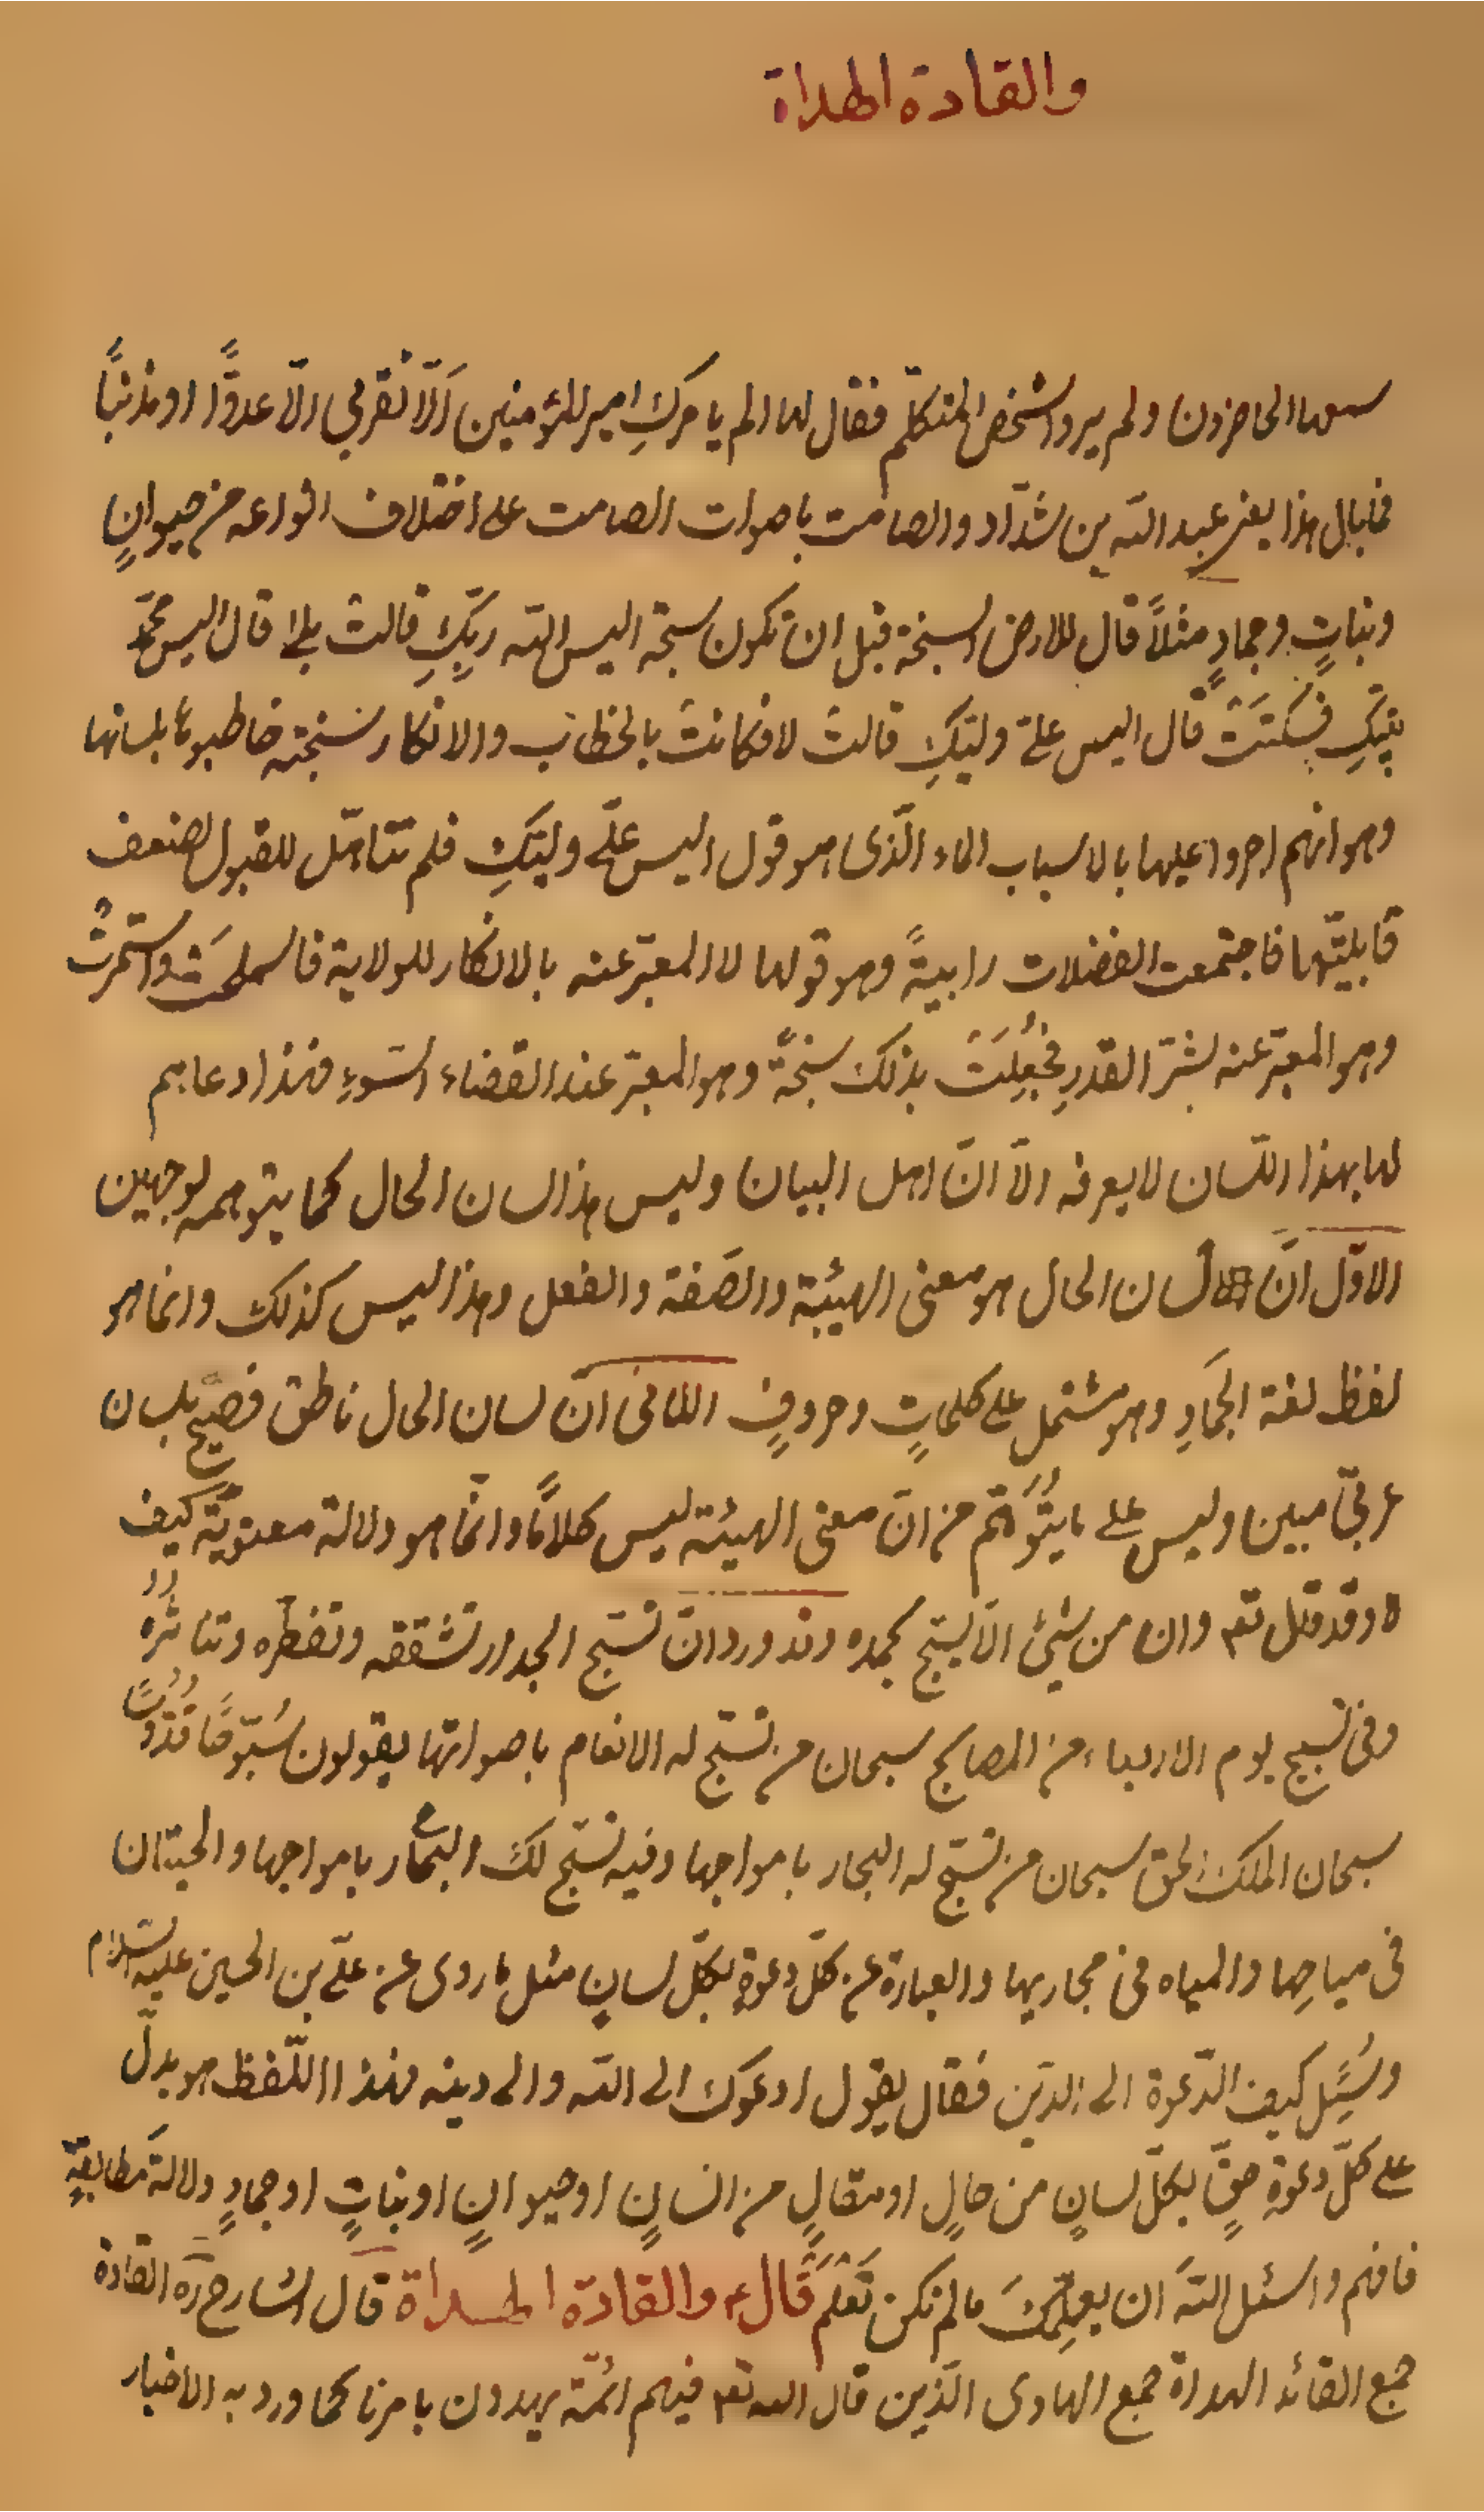 والقادة الهداة
سمعها الحاضرون ولم يروا شخص المتكلم فقال لها الم يامركِ امير المؤمنين اَلّا تقربي الّا عدوًّا او مذنباً
فما بال هذا يعني عبد الله بن شدّاد والصامت باصوات الصامت على اختلاف انواعه من حيوانٍ
ونباتٍ وجمادٍ مثلاً قال للارض السبخة قبل ان تكون سبخة اليس الله ربّكِ قالت بلى قال اليس محمّد
نبيّكِ فسكتَتْ قال اليس علىّ وليّكِ قالت لا فكانت بالخطاب والانكار سبخة خاطبوها بلسانها
وهو انهم اجروا عليها بالاسباب الماء الّذى هو قول اليس علىّ وليّكِ فلم تتاهّل للقبول لضعف
قابليّتها فاجتمعت الفضلات رابيةً وهو قولها لا المعبّر عنه بالانكار للولاية فاستملحَتْ واستمرّتْ
وهو المعبّر عنه بشرّ القدرِ فجُعِلَتْ بذلك سبخةً وهو المعبّر عند القضاء السّوءِ فهذا دعاهم
لها بهذا اللّسان لا يعرفه الّا انّ اهل البيان وليس هذا لسان الحال كما يتوهمه لوجهين
الاوّل انّ لسان الحال هو معنى الهيئة والصّفة والفعل وهذا ليس كذلك وانما هو
لفظ لغة الجمَادِ وهو مشتمل على كلماتٍ وحروفٍ الثانى انّ لسان الحال ناطق فصيح بلسان
عربىّ مبين وليس على ما يتُوَهّم من انّ معنى الهيئة ليس كلامًا وانّما هو دلالة معنويّة كيف
لا وقد قال تع وان من شئ الّا يسبّح بحمده وقد ورد انّ تسبّح الجدار تشققه وتفطّره وتناثُرُهُ
وفى تسبيح يوم الاربعاء من المصابح سبحان من تسبّح له الانعام باصواتها يقولون سُبّوحًا قدّوسًا
سبحان الملك الحق سبحان من تسبّح له البحار بامواجها وفيه تسبّح لك البحار بامواجها والحيتان
فى مياهِها والمياه فى مجاريها والعبارة عن كلّ دعوةٍ بكلّ لسانٍ مثل ما روى عن علىّ بن الحسين عليه السّلام
وسُئِل كيف الدّعوة الى الدّين فقال يقول ادعوك الى الله والى دينه فهذا اللّفظ هو يدلّ
على كلّ دعوةِ حقٍّ بكلّ لسانٍ من حالٍ او مقالٍ من انسانٍ او حيوانٍ او نباتٍ او جمادٍ دلالةَ مطابقةٍ
فافهم واسئل اللهَ ان يعلّمكَ ما لم تكن تَعْلَمُ قَالَ ع والقادة الهداة قال الشارح ره القادة
جمع القائد الهداة جمع الهادى الّذين قال الله تع فيهم ائمّة يهدون بامرنا كما ورد به الاخبار